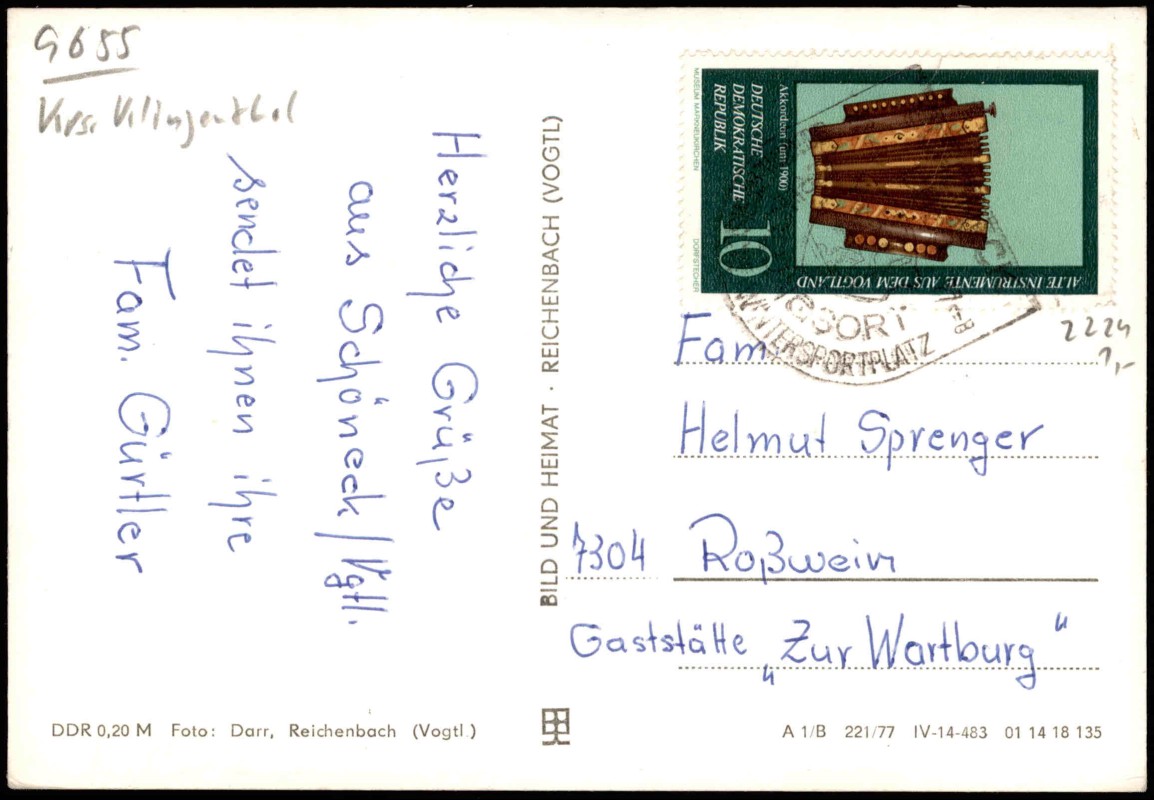 9655
Krs. Klingenthal
Herzliche Grüße
aus Schöneck/Vgtl.
sendet ihnen ihre
Fam. Gürtler
BILD UND HEIMAT · REICHENBACH (VOGTL)
MUSEUM MARKNEUKIRCHEN
DORFSTECHER
Akkordeon (um 1900)
DEUTSCHE
DEMOKRATISCHE
REPUBLIK
10
ALTE INSTRUMENTE AUS DEM VOGTLAND
WINTERSPORTPLATZ
2224
1,-
Fam.
Helmut Sprenger
7304 Roßwein
Gaststätte „Zur Wartburg"
DDR 0,20 M Foto: Darr, Reichenbach (Vogtl.)
A 1/B 221/77 IV-14-483 01 14 18 135